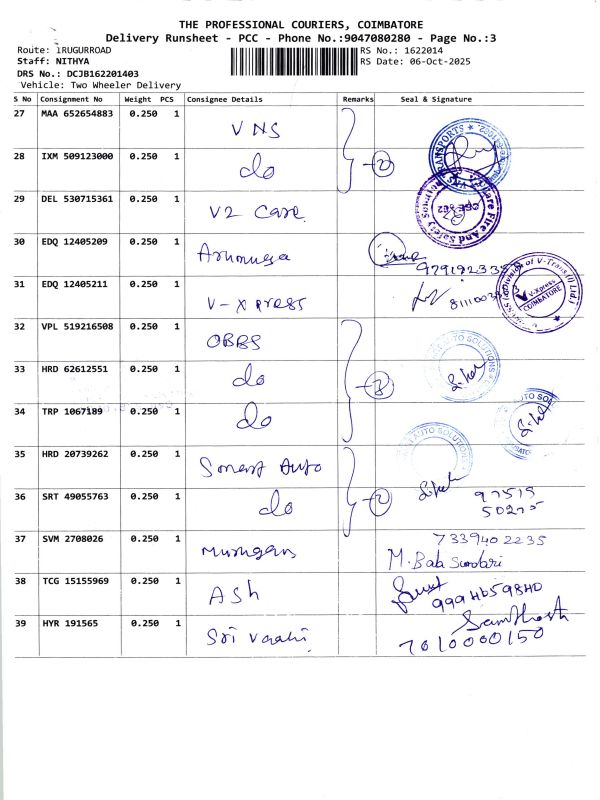 THE PROFESSIONAL COURIERS, COIMBATORE
Delivery Runsheet - PCC - Phone No.:9047080280 - Page No.:3
Route: IRUGURROAD
RS No.: 1622014
Staff: NITHYA
RS Date: 06-Oct-2025
DRS No.: DCJB162201403
Vehicle: Two Wheeler Delivery
S No Consignment No Weight PCS Consignee Details Remarks Seal & Signature
27 MAA 652654883 0.250 1 VNS
28 IXM 509123000 0.250 1 do 2
29 DEL 530715361 0.250 1 V2 Care
30 EDQ 12405209 0.250 1 Arumuga
31 EDQ 12405211 0.250 1 V-Xpress
32 VPL 519216508 0.250 1 OBBS
33 HRD 62612551 0.250 1 do 3
34 TRP 1067189 0.250 1 do
35 HRD 20739262 0.250 1 Smart Auto
36 SRT 49055763 0.250 1 do 2 97515
50275
37 SVM 2708026 0.250 1 Murugan 7339402235
M. Bala Sundari
38 TCG 15155969 0.250 1 Ash 9994659840
39 HYR 191565 0.250 1 Sri Vaahi 7010000150
AUTO SOLUTIONS
V-Xpress
COIMBATORE